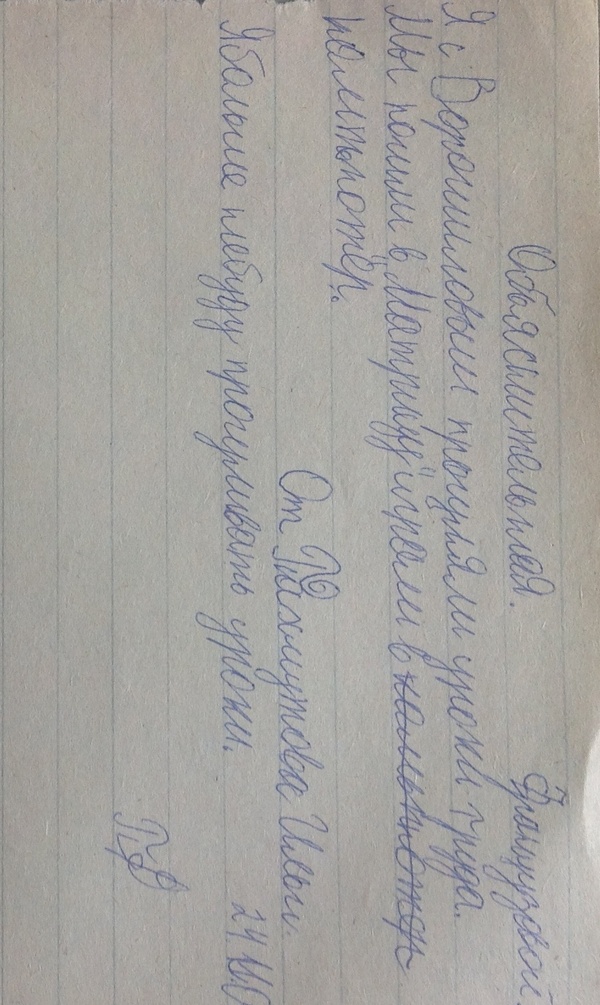 Французовой
Объяснительная.
Я с Ворошиловым прогуляли уроки труда.
Мы пошли в "Матрицу" играли в
компьютер.
От Пахмутова Ильи.
Я больше небуду прогуливать уроки.
24.